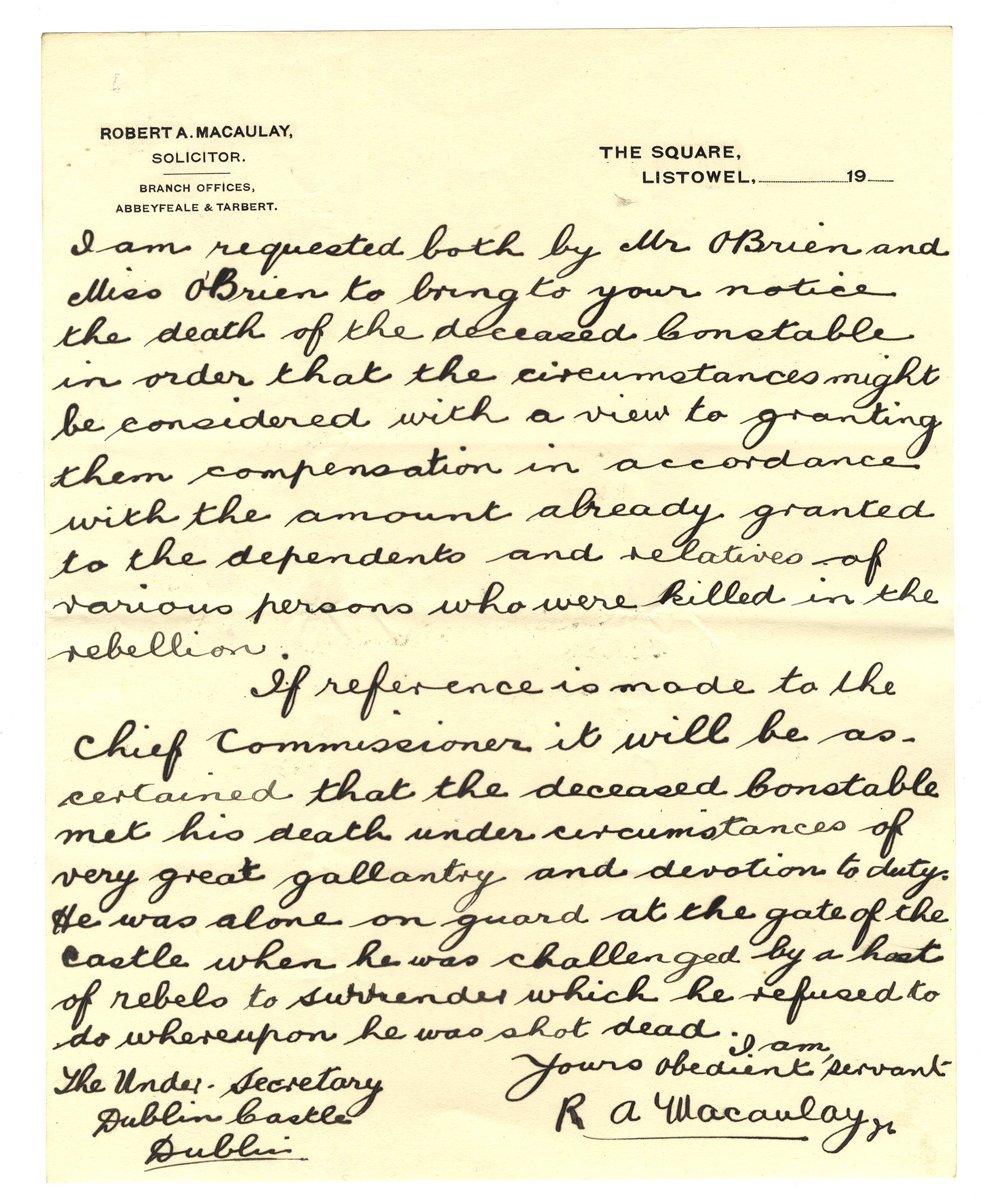 ROBERT A. MACAULAY,
SOLICITOR.
BRANCH OFFICES,
ABBEYFEALE & TARBERT.
THE SQUARE,
LISTOWEL, 19
I am requested both by Mr O'Brien and
Miss O'Brien to bring to your notice
the death of the deceased Constable
in order that the circumstances might
be considered with a view to granting
them compensation in accordance
with the amount already granted
to the dependents and relatives of
various persons who were killed in the
rebellion.
If reference is made to the
Chief Commissioner it will be as-
certained that the deceased Constable
met his death under circumstances of
very great gallantry and devotion to duty.
He was alone on guard at the gate of the
Castle when he was challenged by a host
of rebels to surrender which he refused to
do whereupon he was shot dead.
I am,
Yours obedient servant
R A Macaulay
The Under-Secretary
Dublin Castle
Dublin